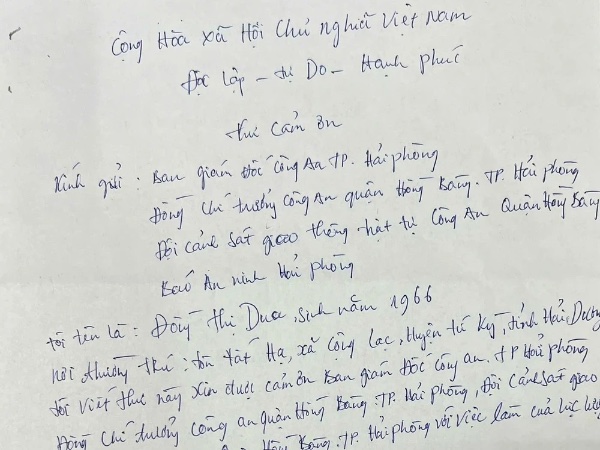 Cộng Hòa Xã Hội Chủ nghĩa Việt Nam
Độc lập - Tự Do - Hạnh phúc
Thư cảm ơn
Kính gửi : Ban giám đốc công An TP. Hải phòng
Đồng chí trưởng công An quận Hồng Bàng. TP Hải phòng
Đội cảnh sát giao thông trật tự Công An Quận Hồng Bàng
Báo An ninh Hải phòng
Tôi tên là : Đồng Thị Dua, sinh năm 1966
Nơi thường trú : tôn tất Hạ, xã Cộng Lạc, Huyện tứ Kỳ, tỉnh Hải Dương
Tôi viết thư này xin được cảm ơn Ban giám đốc công an. TP Hải phòng
Đồng chí trưởng công an quận Hồng Bàng. TP. Hải phòng, Đội cảnh sát giao
Hồng Bàng. TP. Hải phòng với việc làm của lực lượng